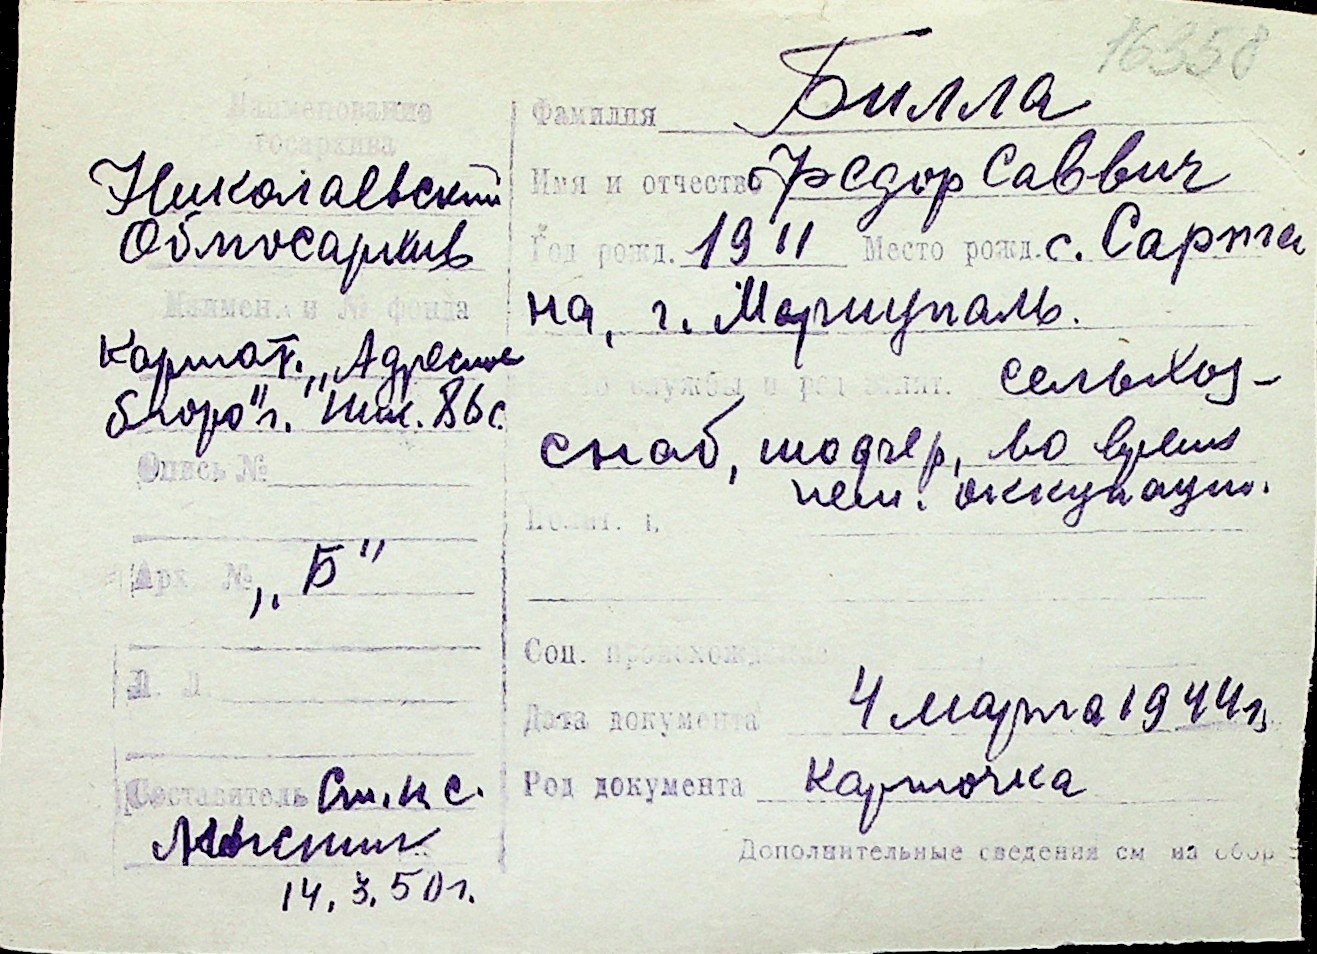 16358
Наименование
госархива
Николаевский
Облгосархив
Наимен. и № фонда
Картот. „Адресное
бюро" г. Ник. 86 с.
Опись №
Арх №
„Б"
Л. Л
Составитель Ст. н с.
14.3.50 г.
Фамилия Билла
Имя и отчество Федор Саввич
Год рожд. 1911 Место рожд. с. Сарта
на, г. Мариуполь.
службы и род занят. сельхоз-
снаб, шофер, во время
нем. оккупации.
Полит.
Соц. происхождение
Дата документа 4 марта 1944 г.
Род документа карточка
Дополнительные сведения см на обор